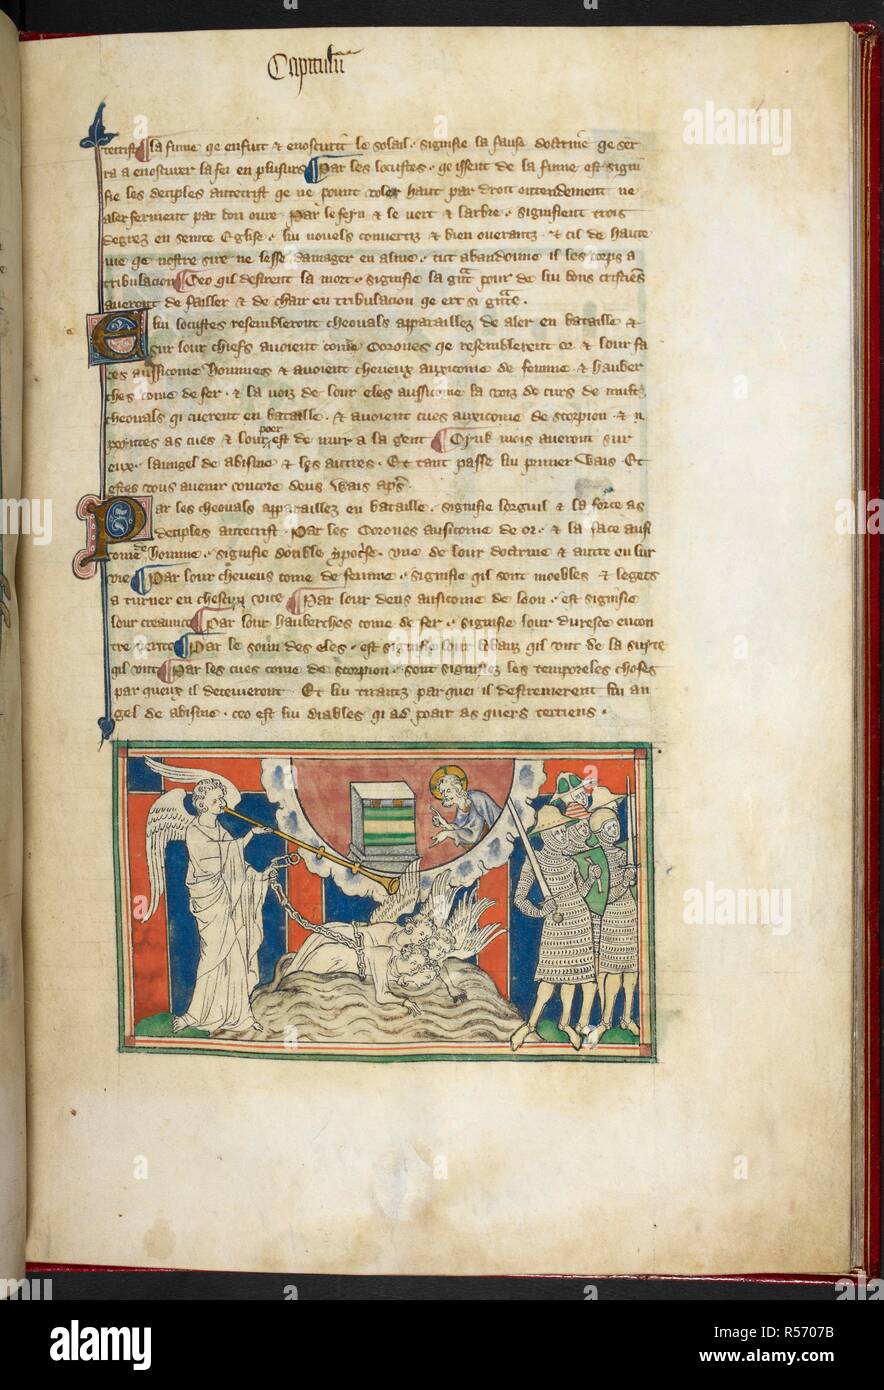 Capitulū
tecrist la fume qe enfuit & enoscurit le solail · signifie la fause doctrine qe ser
ra a enoscurer la fei en plusurs Par les locustes · qe issent de la fume est signi
fie les deciples antecrist qe ne pount voler haut par droit entendement ne
aler ferment par bon oure Par le feyn & le vert & larbre · signifient trois
degrez en seinte Eglise · lui nouels convertiz & bien ouerantz · & cil de haute
vie qe nostre sire ne lesse damager en alme · tut abandonne il les corps a
tribulacion Ceo qil desirent la mort · signifie la pour de lui bons cristiens
aueront de failler & de chair en tribulacion qe ert si
E lui locustes resembleront cheouals apparaillez de aler en bataille &
sur lour chiefs auoient come Corones qe resemblerent or & lour fa
ces aussicome hommes & auoient cheueux auxicome de femme & hauber
ches come de fer · & la uoiz de lour eles aussicome la voiz de curs de
cheouals qi cuerent en bataille · & auoient cues auxicome de scorpion · &
poyntes as cues & lour poer est de nuir a la gent Cynk mois aueront sur
eux · laungel de abisme & les autres · Et tant passe lui primer Wais Et
estes vous auenir oncore deus Wais aps
Par les cheouals apparaillez en bataille · signifie lorguil & la force as
deciples antecrist · Par les Corones ausicome de or · & la face ausi
come de homme · signifie double ypocrisie · vne de lour doctrine & autre en lur
vie Par lour cheueus come de femme · signifie qil sont moebles & legers
a turner en chescun vice Par lour dens ausicome de leon · est signifie
lour creaunce Par lour hauberches come de fer · signifie lour dureste encon
tre verite Par le soun des eles · est signifie lour qil ont de la suyte
qil ont Par les cues come de scorpion · sont signifiez les temporeles choses
par queux il deceiueront · Et lui tirantz par quei il destreinerent lui an
gel de abisme · ceo est lui diables qi ad poair as quers terriens ·
alamy
alamy
a
Image ID: R5707B
www.alamy.com